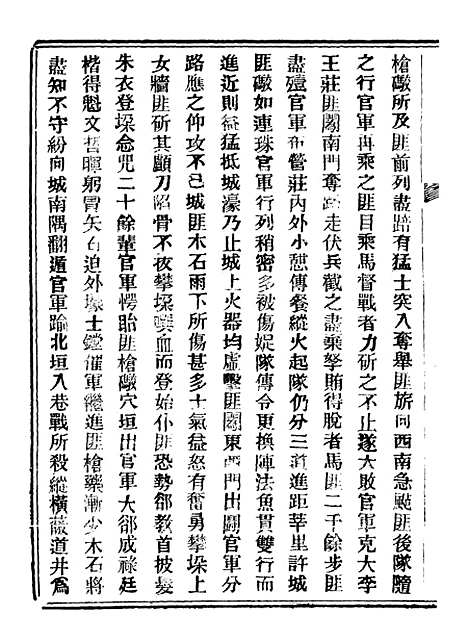 槍礮所及匪前列盡踣有猛士突入奪舉匪旂向西南急颭匪後隊隨
之行官軍再乘之匪目乘馬督戰者力斫之不止遂大敗官軍克大李
王莊匪闖南門奪路走伏兵截之盡棄孥賄得脫者馬匪二千餘步匪
盡殪官軍布營莊內外小憩傳餐縱火起隊仍分三道進距莘里許城
匪礮如連珠官軍行列稍密多被傷娖隊傳令更換陣法魚貫雙行而
進近則益猛抵城濠乃止城上火器均虛擊匪闖東西門出鬭官軍分
路應之仰攻不已城匪木石雨下所傷甚多士氣益怒有奮勇攀堞上
女牆匪斫其顱刀陷骨不拔攀堞噀血而登始仆匪恐勢郤教首披髮
朱衣登堞念咒二十餘輩官軍愕眙匪槍礮穴垣出官軍大郤成祿廷
楷得魁文哲暉躬冒矢石迫外壕士鏜催軍繼進匪槍藥漸少木石將
盡知不守紛向城南隅翻遁官軍踰北垣入巷戰所殺縱橫蔽道井爲